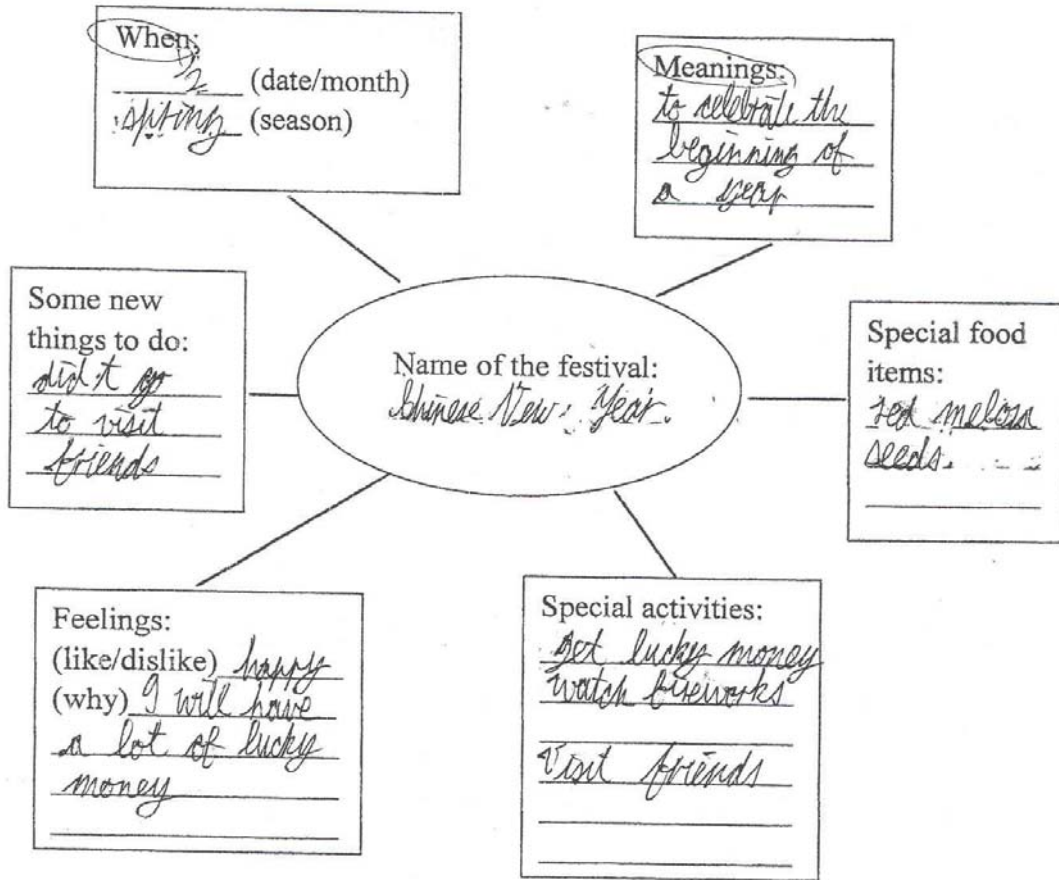 When:
2 (date/month)
spring (season)
Meanings:
to celebrate the
beginning of
a year
Some new
things to do:
did't go
to visit
friends
Name of the festival:
Chinese New Year.
Special food
items:
red melon
seeds.
Feelings:
(like/dislike) happy
(why) I will have
a lot of lucky
money
Special activities:
get lucky money
watch fireworks
Visit friends